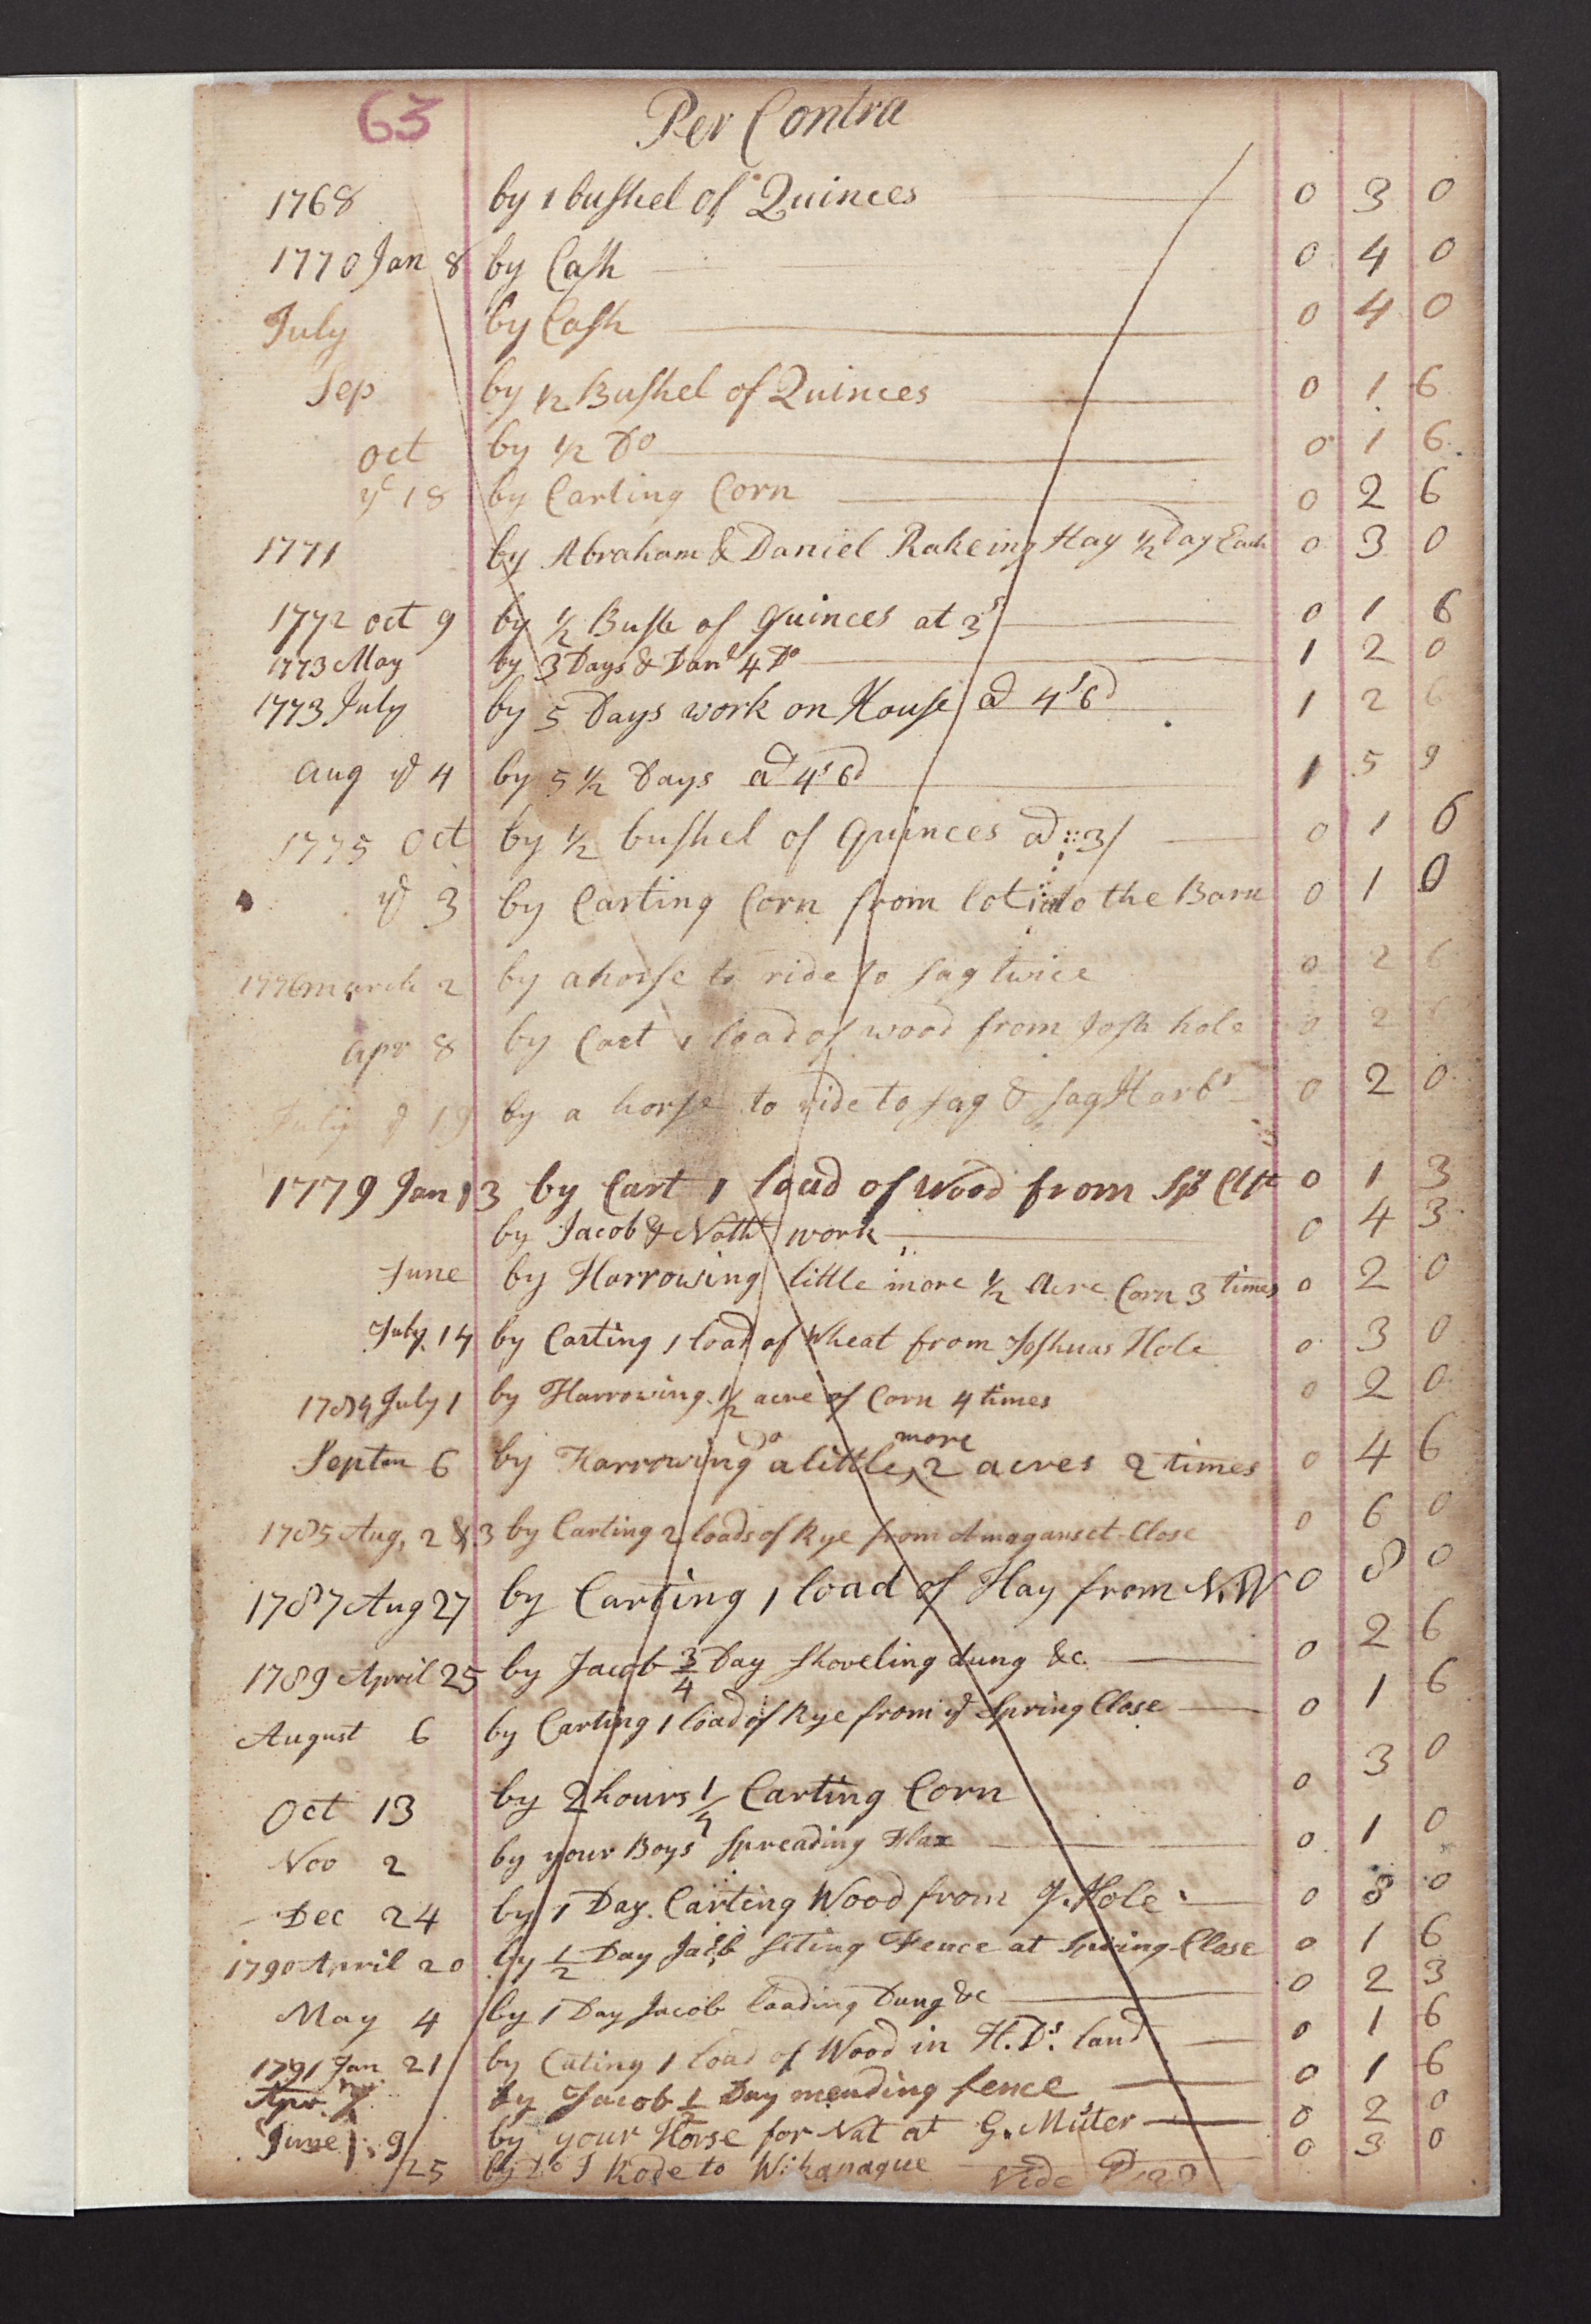 63 Per Contra
1768 by 1 bushel of Quinces 0 3 0
1770 Jan 8 by Cash 0 4 0
July by Cash 0 4 0
Sep by 1/2 Bushel of Quinces 0 1 6
Oct by 1/2 Do 0 1 6
ye 18 by Carting Corn 0 2 6
1771 by Abraham & Daniel Rakeing Hay 1/2 Day Each 0 3 0
1772 oct 9 by 1/2 Bush of Quinces at 3s 0 1 6
1773 May by 3 Days & Danl 4 Do 1 2 0
1773 July by 5 Days work on House ad 4s 6d 1 2 6
Aug ye 4 by 5 1/2 Days ad 4s 6d 1 5 9
1775 Oct by 1/2 bushel of Quinces ad :: 3/ 0 1 6
ye 3 by Carting Corn from lot into the Barn 0 1 0
1776 march 2 by a horse to ride to sag twice 0 2 6
apr 8 by Cart 1 load of wood from Josh hole 0 2 6
July ye 19 by a horse to ride to sag & sag Harbr 0 2 0
1779 Jan 13 by Cart 1 load of Wood from 0 1 3
by Jacob & Nath work 0 4 3
June by Harrowing little more 1/2 Acre Corn 3 times 0 2 0
July 14 by Carting 1 load of Wheat from Joshuas Hole 0 3 0
1784 July 1 by Harrowing 1/2 acre of Corn 4 times 0 2 0
Septm 6 by Harrowing Do a little more 2 acres 2 times 0 4 6
1785 Aug, 2 & 3 by Carting 2 loads of Rye from Amaganset Close 0 6 0
1787 Aug 27 by Carting 1 load of Hay from N.W 0 8 0
1789 April 25 by Jacob 3/4 Day Shoveling dung &c. 0 2 6
August 6 by Carting 1 load of Rye from ye Spring Close 0 1 6
Oct 13 by 2 hours 1/4 Carting Corn 0 3 0
Nov 2 by your Boys Spreading Flax 0 1 0
Dec 24 by 1 Day Carting Wood from J. Hole 0 8 0
1790 April 20 by 1/2 Day Jacb seting Fence at Spring Close 0 1 6
May 4 by 1 Day Jacob loading Dung &c 0 2 3
1791 Jan 21 by Cuting 1 load of Wood in H. Ds. land 0 1 6
Apr. by Jacob 1/2 Day mending fence 0 1 6
June 9 by your Horse for Nat at G. Muster 0 2 0
25 by Do I Rode to 0 3 0
Vide